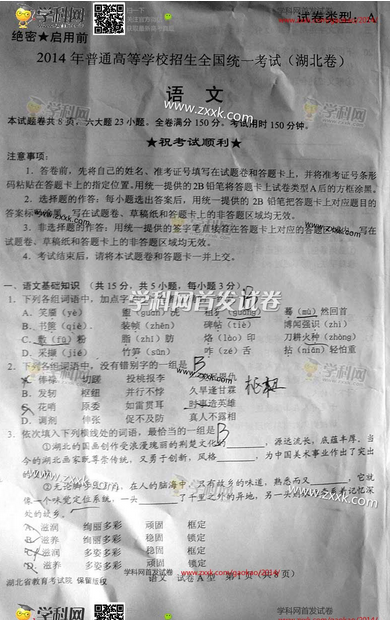 学科网 学科网首发试卷 学科网
www.zxxk.com 试卷类型：A
绝密★启用前
2014年普通高等学校招生全国统一考试（湖北卷）
语 文
www.zxxk.com
本试题卷共8页，六大题23小题。全卷满分150分。考试用时150分钟。
★祝考试顺利★
注意事项：
1．答卷前，先将自己的姓名、准考证号填写在试题卷和答题卡上，并将准考证号条形
码粘贴在答题卡上的指定位置。用统一提供的2B铅笔将答题卡上试卷类型A后的方框涂黑。
2．选择题的作答：每小题选出答案后，用统一提供的2B铅笔把答题卡上对应题目的
答案标号涂黑。写在试题卷、草稿纸和答题卡上的非答题区域均无效。
3．非选择题的作答：用统一提供的签字笔直接答在答题卡上对应的答题区域内。写在
试题卷、草稿纸和答题卡上的非答题区域均无效。
4．考试结束后，请将本试题卷和答题卡一并上交。
一、语文基础知识（共15分，共5小题，每小题3分）
学科网首发试卷
1．下列各组词语中，加点字 B
A．笑靥（yè） 驀（mù）然回首
B．书箧（qiè） 装帧（zhēn） 碑帖（tiè） 博闻强识（zhì）
C．敷（fū）粉 脂（zhī）肪 烙（lào）印 刀耕火种（zhòng）
D．采撷（jié） 竹笋（sǔn） 咋（zé）舌 拈（niān）轻怕重
www.zxxk.com
2．下列各组词语中，没有错别字的一组是 B
A．俸禄 投桃报李
B．发轫 枢纽 并行不悖 久旱逢甘霖 枢纽
C．花哨 原委 如雷贯耳 时事造英雄
D．调剂 仲张 促不及防 真人不露相
3．依次填入下列横线处的词语，最恰当的一组是 B
①湖北的国画创作受浪漫瑰丽的荆楚文化____，源远流长，底蕴丰厚，当
今的湖北画家既尊崇传统，又勇于创新，风格____，为中国美术事业作出了突出
的
A．滋润 绚丽多彩 顽固 框定
B．滋养 绚丽多彩 稳固 锁定
C．滋润 多姿多彩 稳固 框定
D．滋养 多姿多彩 顽固 锁定
湖北省教育考试院 保留版权 语文 试卷A型 第1页（共8页）
学科网 学科网首发试卷 学科网